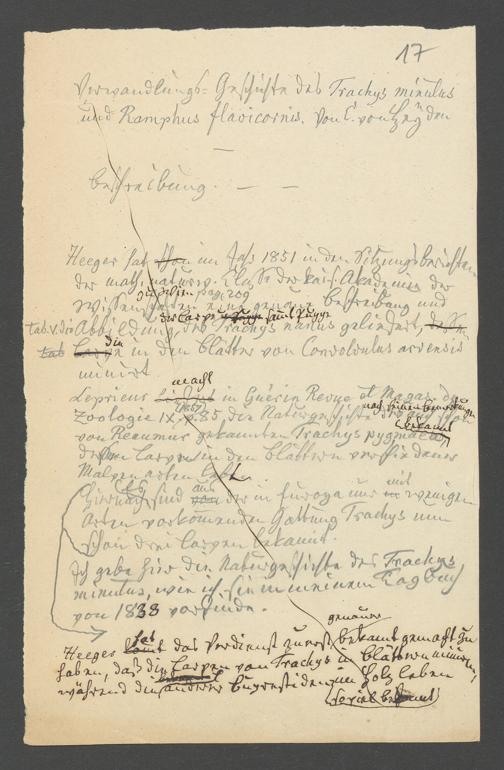 17
Verwandlungs-Geschichte des Trachys minutus
und Ramphus flavicornis. Von C. von Heyden
—
beschreibung. — —
Heeger hat schon im Jahr 1851 in den Sitzungsberichten
der math. naturw. Classe der kais. Akademie der
zu Wien pag. 209
Wissenschaften eine genaue Beschreibung und
der Larve samt Puppe
Tab. V. die Abbildung des Trachys nanus geliefert,
die
Tab Larve in den Blätter von Convolvulus arvensis
minirt
macht
Leprieur in Guérin Revue et Magaz. de
Zoologie IX, p. 85 die Naturgeschichte
nach seinen
bekannt
von Reaumur gekannten Trachys pygmaea
deren Larven in den Blättern verschiedener
Malven arten lebt.
Hiernach sind aus der in Europa nur mit wenigen
Arten vorkommenden Gattung Trachys nun
schon drei Larven bekannt.
Ich gebe hier die Naturgeschichte des Trachys
minutus, wie ich sie in meinem Tagbuch
von 1838 vorfinde.
genauer
hat
Heeger das Verdienst zuerst bekannt gemacht zu
haben, daß die Larven von Trachys in Blättern miniren,
während die anderer Buprestiden im Holz leben